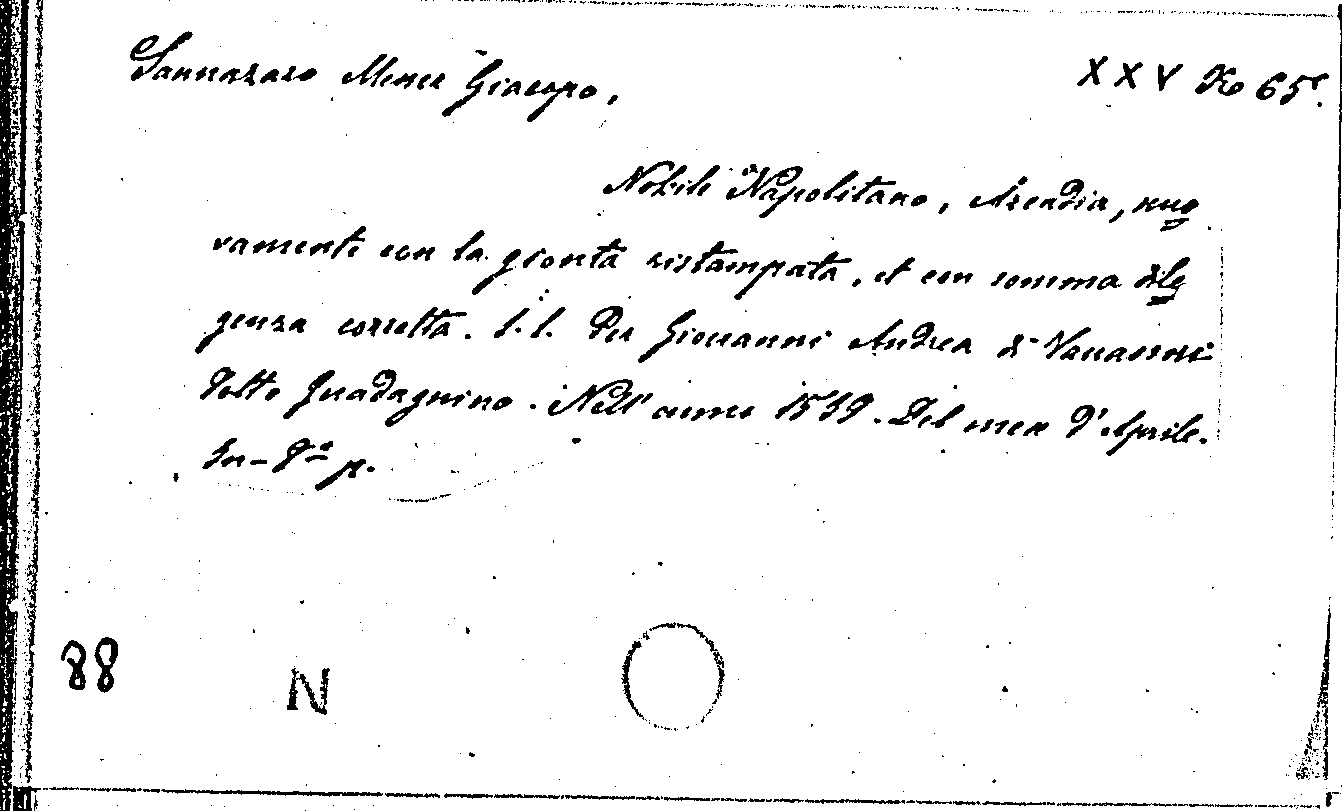 Sannazaro Messer Giacopo,
XXV Ko 65.
Nobile Napolitano, Arcadia, nuo
vamente con la gionta ristampata, et con somma dilg
genza corretta. s. l. Per Giovanni Andrea di Vavassori
detto Guadagnino. Nell' anno 1539. Del mese d'Aprile.
In-8º p.
88
N